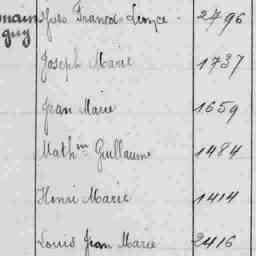 Yves François Léonce - 2796
Joseph Marie 1737
Jean Marie 1659
Math in Guillaume 1484
Henri Marie 1414
Louis Jean Marie 2416